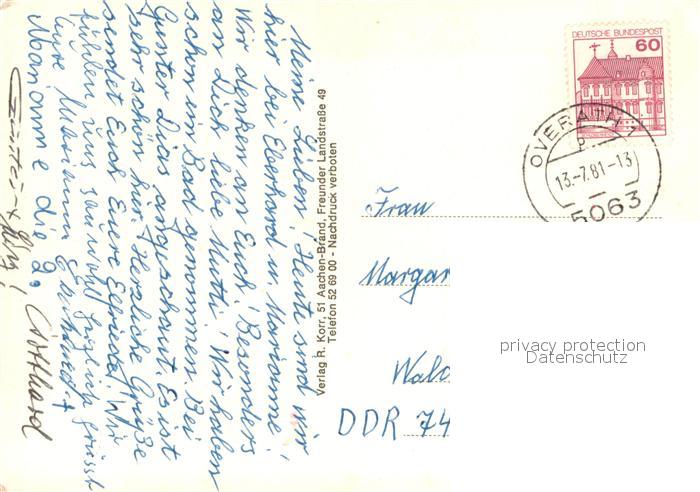 Meine Lieben! Heute sind wir
hier bei Eberhard u. Marianne!
Wir denken an Euch! Besonders
an Dich liebe Mutti! Wir haben
schon im Bad genommen. Bei
Günter Dias angeschaut. Es ist
sehr schön hier. Herzliche Grüße
sendet Euch Eure Elfriede. Wir
fühlen uns sauwohl
Eure
Marianne die 2.
Gotthard
Verlag R. Korr, 51 Aachen-Brand, Freunder Landstraße 49
Telefon 52 69 00 - Nachdruck verboten
DEUTSCHE BUNDESPOST
60
OVERATH 1
13.-7.81-13
5063
Frau
Margar
Wald
DDR 74
privacy protection
Datenschutz